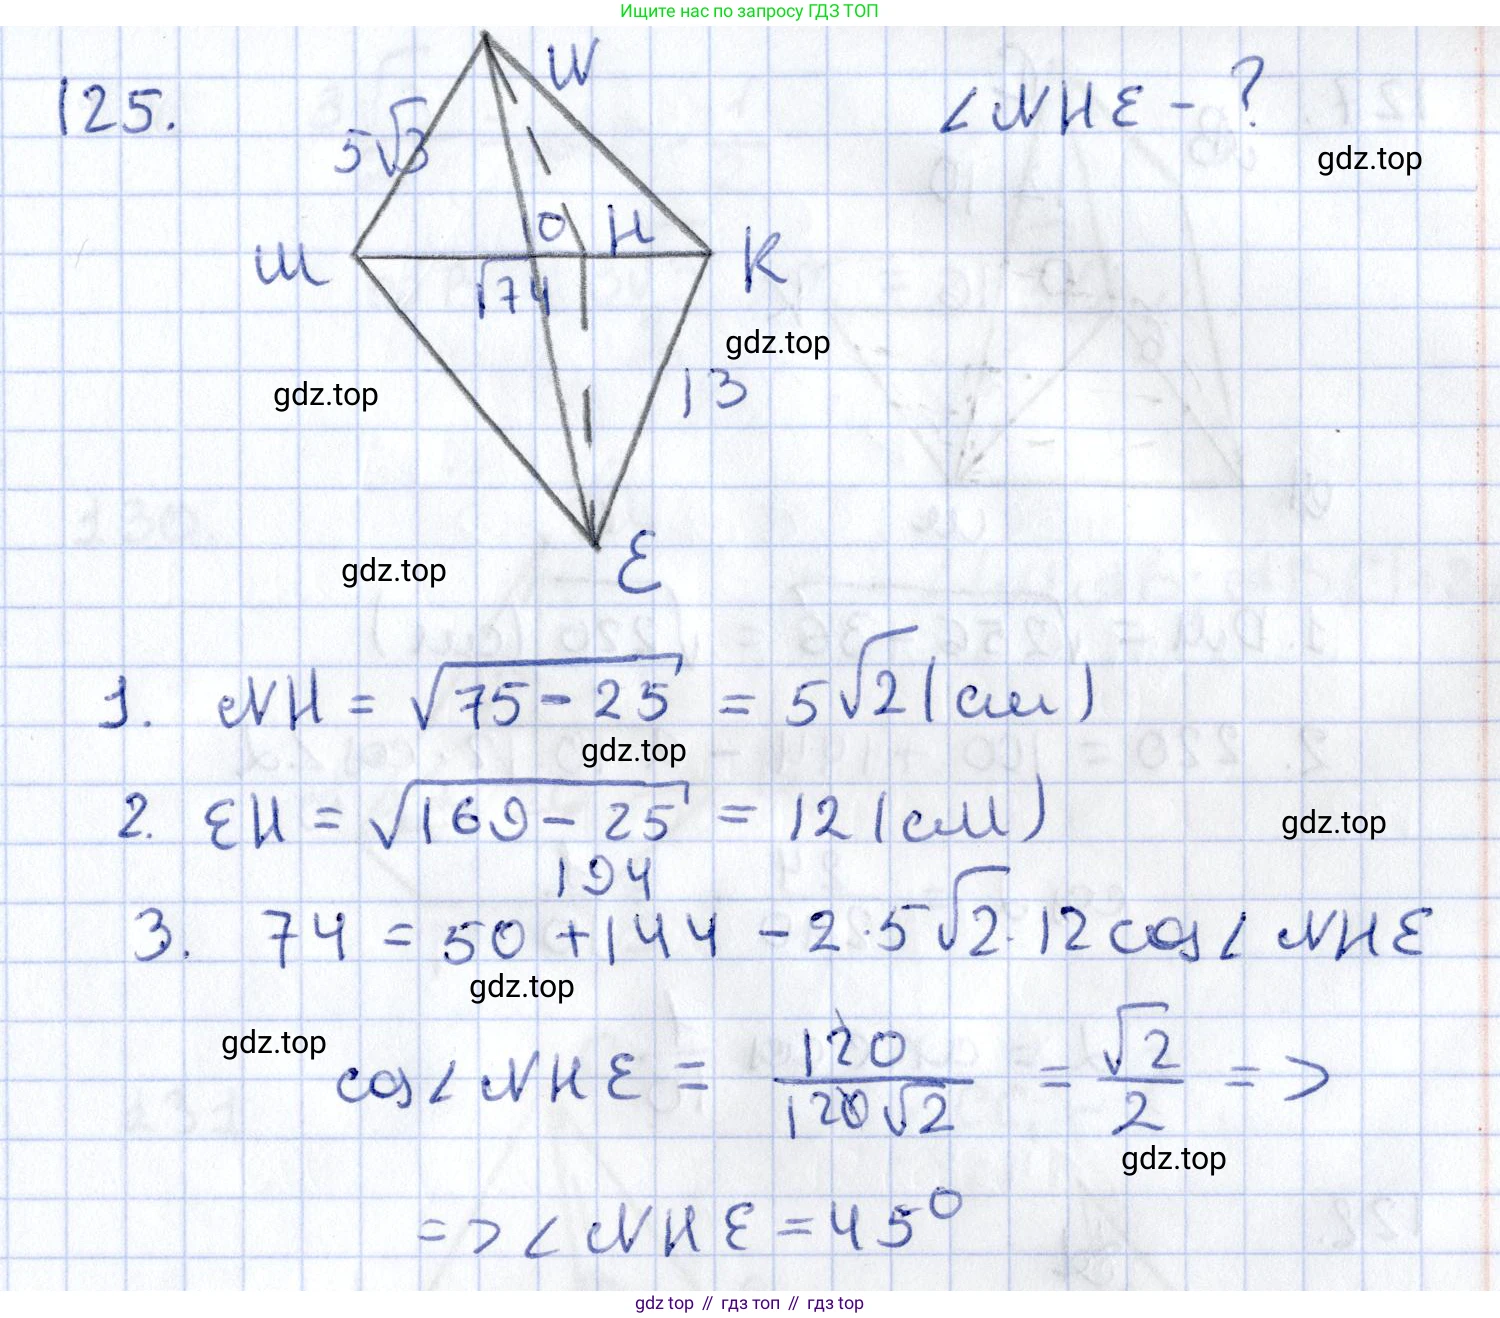 Ищите нас по запросу ГДЗ ТОП
125.
N
∠NHE - ?
gdz.top
5√3
O H
M
K
√74
gdz.top
13
gdz.top
E
gdz.top
1. NH = √75 - 25 = 5√2 (см)
gdz.top
2. EH = √169 - 25 = 12 (см)
gdz.top
194
3. 74 = 50 + 144 - 2·5√2·12 cos∠NHE
gdz.top
gdz.top
cos∠NHE = 120/120√2 = √2/2 =>
gdz.top
=> ∠NHE = 45°
gdz.top // гдз топ // гдз top